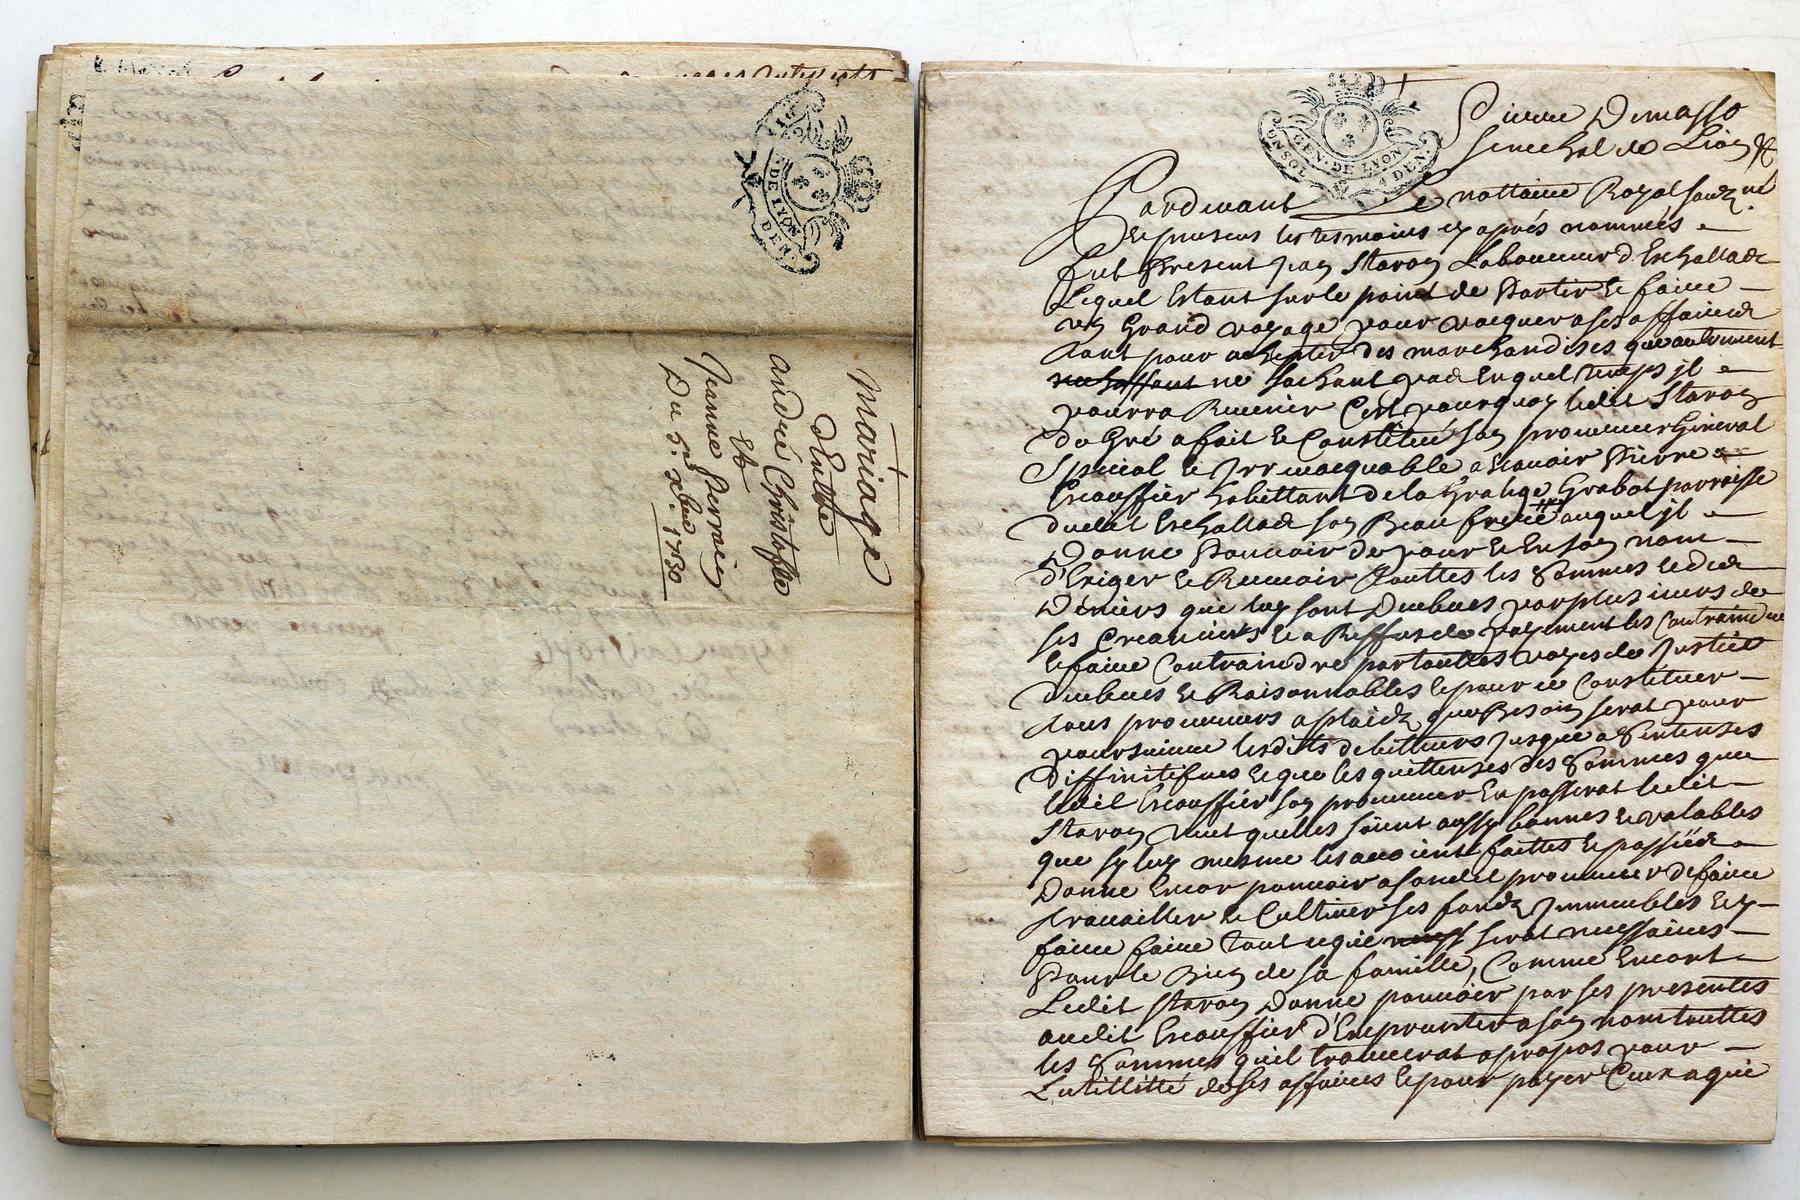 GEN. DE LYON
Mariage
d'Entre
andré Christofle
Et
Jeanne Perrain
Du 5e xbre 1730
GEN. DE LYON
Pierre Demasso
senechal de Lion &
Pardevant Le nottaire Royal soubz né
Et presens les tesmoins cy aprés nommés
fut Present Jean Staron Laboureur d'Eschallad
Lequel Estant sur le point de Partir Et faire
un Grand voyage pour vacquer a ses affaires
tant pour achepter des marchandises que autrement
ne sachant pas En quel temps jl
pourra Revenir C'est pourquoy ledit Staron
de Gré a fait Et Constitué son procureur General
Special Et Jrrevocquable a scavoir Pierre
Escouffier habittant de la Grange Grabot parroisse
dudit Eschallad son Beau frere auquel jl
Donne Pouvoir de pour Et En son nom
d'Exiger Et Recevoir Touttes les Sommes Et
Deniers que luy sont Deubues par plusieurs de
ses Creanciers Et a Reffus de payement les Contraindre
Et faire Contraindre par touttes voyes de Justice
deubues Et Raisonnables Et pour ce Constituer
tous procureurs a plaidz que Besoin serat pour
poursuivre lesdits debitteurs jusque a Sentenses
Diffinitifves Et que les quittenses des Sommes que
ledit Escouffier son procureur En passerat ledit
Staron veut quelles soient aussy bonnes Et valables
que sy luy mesme les avoient faittes Et passéés
Donne Encor pouvoir a sondit procureur de faire
travailler Et Cultiver ses fondz Jmmeubles Et y
faire faire tout ce qui serat necessaires
Pour le Bien de sa famille, Comme Encort
Ledit Staron Donne pouvoir par ses presentes
audit Escouffier d'Emprunter a son nom touttes
les Sommes qu'il trouverat a propos pour
L'utillitté de ses affaires Et pour payer Ceux a qui